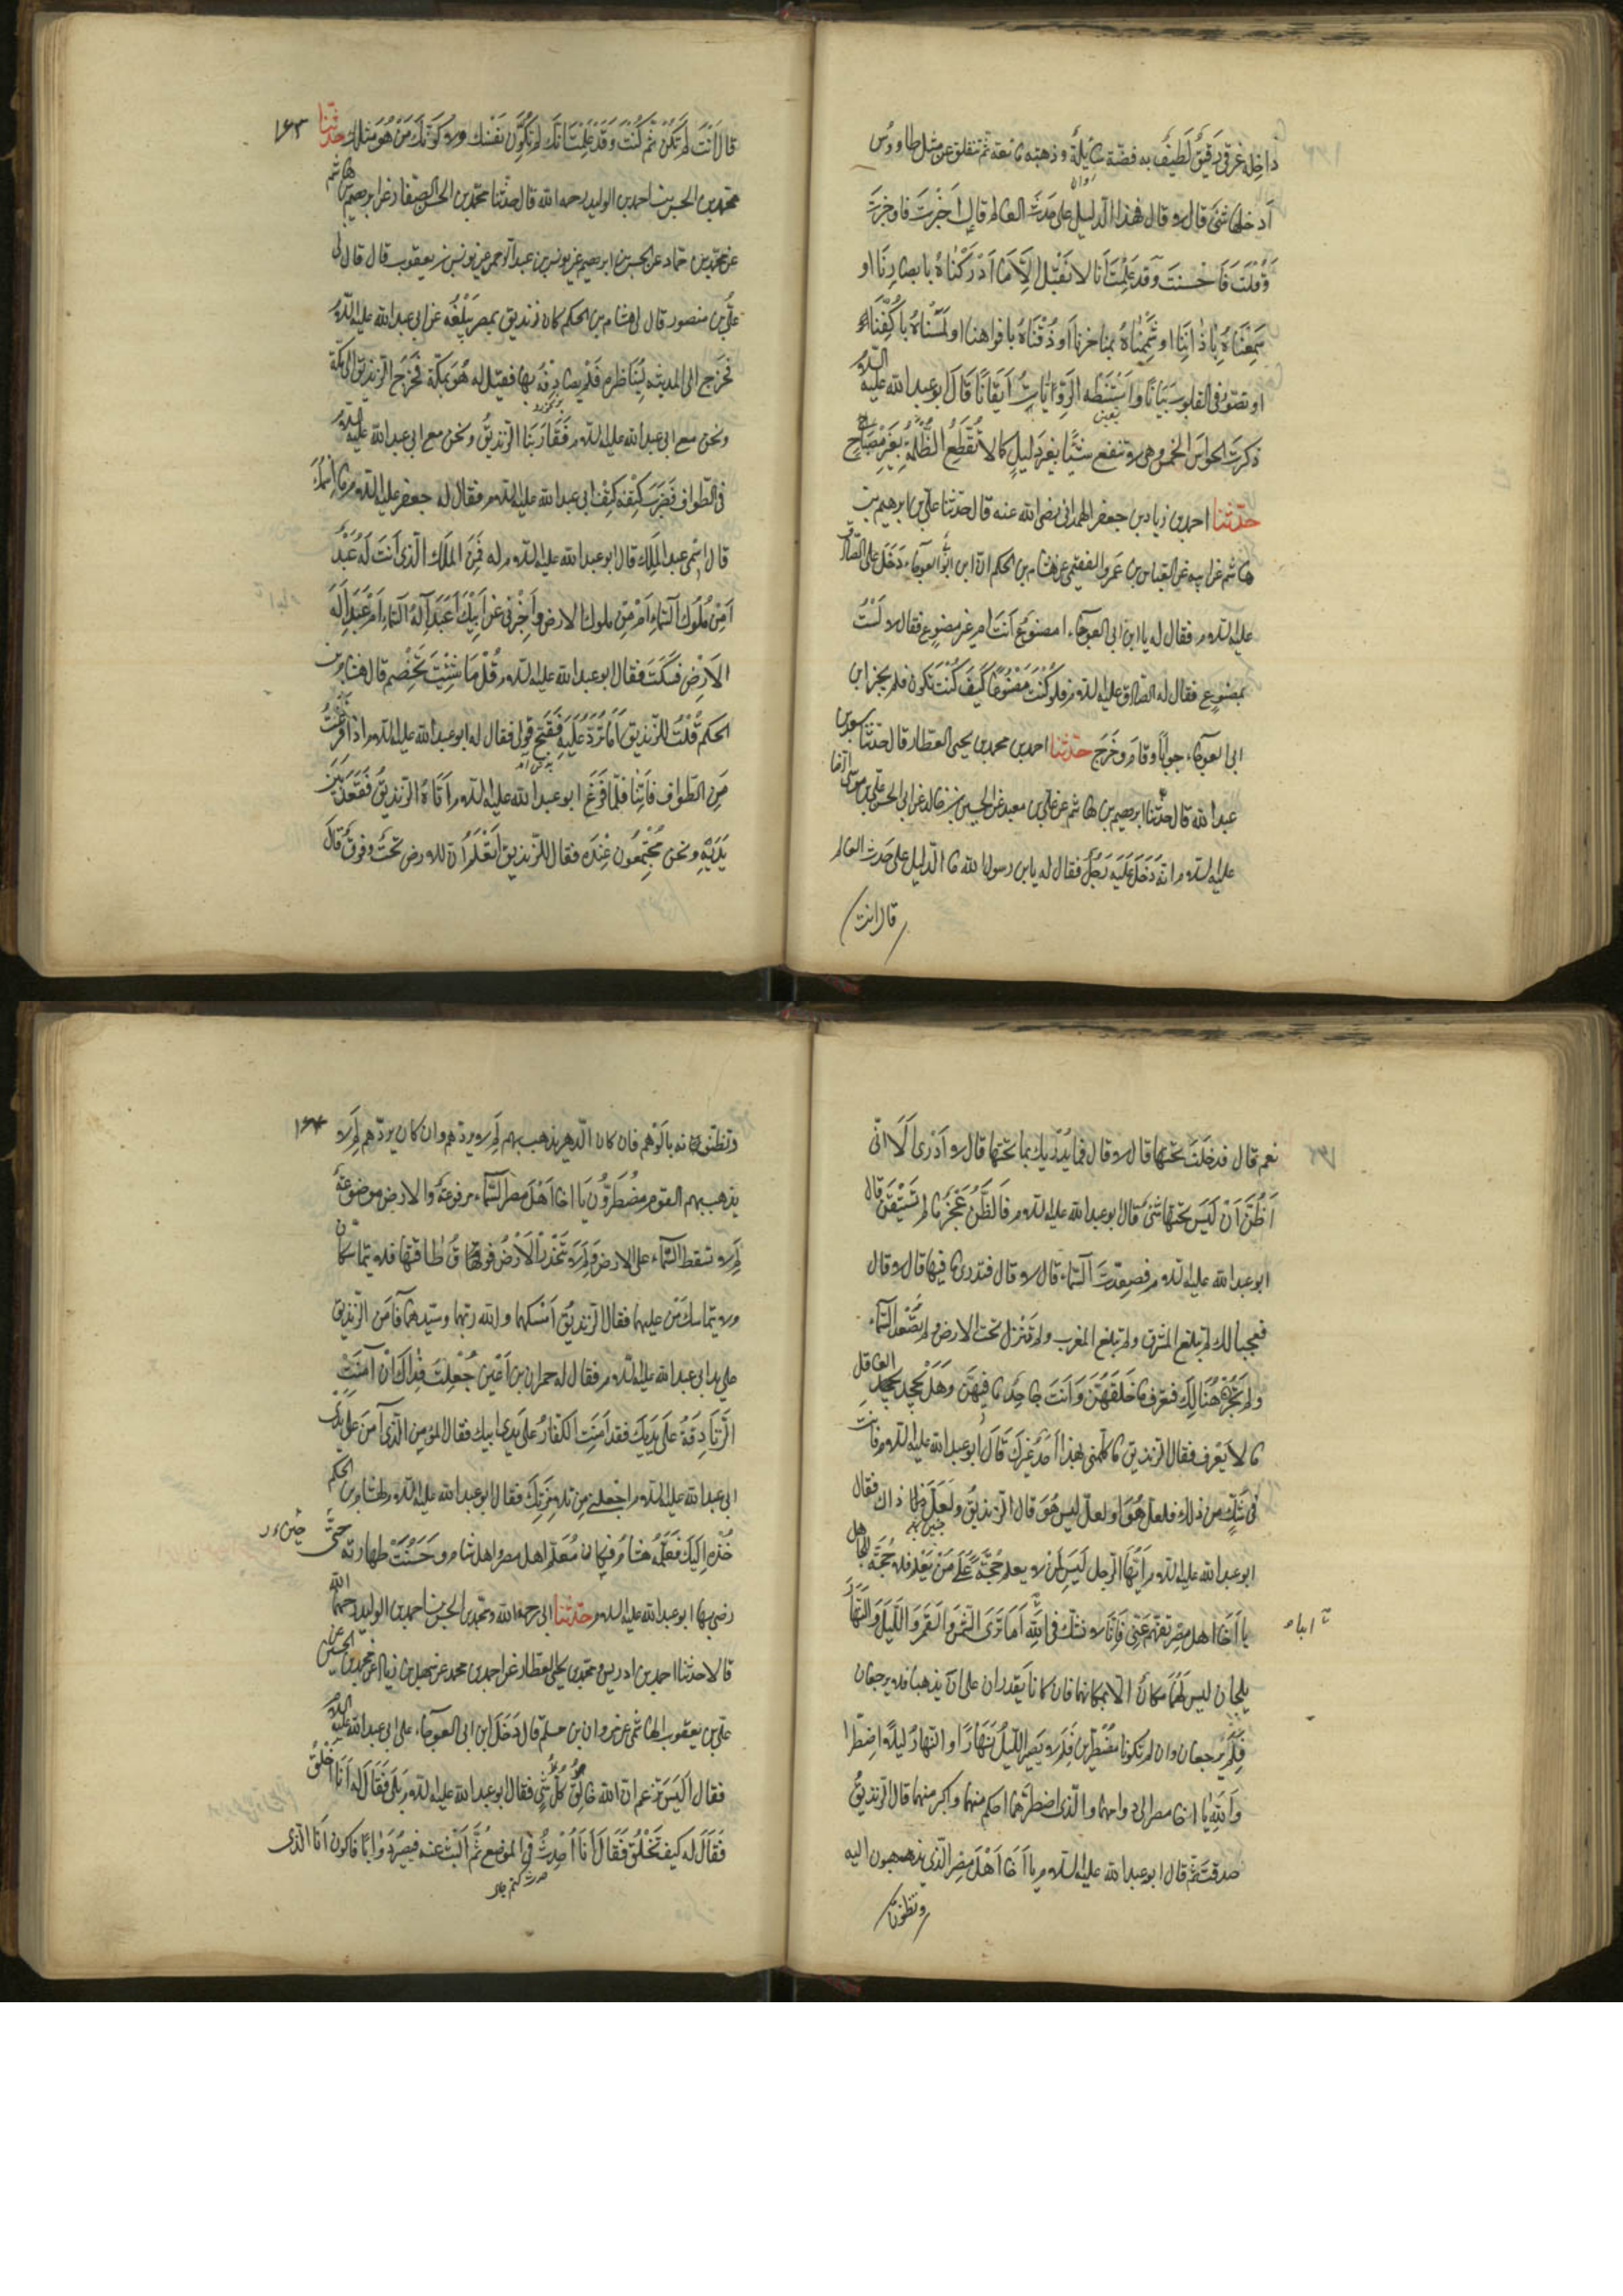 داخله غرقئ رقيق لطيف به فضّة سائلة وذهبه مائعه ثم تنفلق عن مثل طاووس
أدخلها شئ قال لا قال فهذا الدليل على حدث العالم قال اخبرت فاوجزت
وقلت فاحسنت وقد علمت انا لا نقبل الّا ما ادركناه بابصارنا او
سمعناه باذاننا او شممناه بمناخرنا او ذقناه بافواهنا او لمسناه باكفّنا
او تصوّر فى القلوب بيانا واستنبطه الروايات ايقانا قال ابو عبد الله عليه السلام
ذكرت الحواس الخمس وهى لا تنفع شيئا بغير دليل كما لا تقطع الظلمة بغير مصباح
حدّثنا احمد بن زياد بن جعفر الهمدانى رضى الله عنه قال حدثنا على بن ابرهيم بن
هاشم عن ابيه عن العباس بن عمرو الفقيمى عن هشام بن الحكم ان ابن ابى العوجاء دخل على الصادق
عليه السلام فقال له يا ابن ابى العوجاء امصنوع انت ام غير مصنوع فقال لا لست
بمصنوع فقال له الصادق عليه السلام فلو كنت مصنوعا كيف كنت تكون فلم يحر ابن
ابى العوجاء جوابا وقام وخرج حدّثنا احمد بن محمد بن يحيى العطار قال حدثنا سعد بن
عبد الله قال حدثنا ابرهيم بن هاشم عن على بن معبد عن الحسين بن خالد عن ابى الحسن على بن موسى الرضا
عليه السلام انه دخل عليه رجل فقال له يابن رسول الله ما الدليل على حدث العالم
قال انت
١٤٣
قال انت لم تكن ثم كنت وقد علمت انك لم تكوّن نفسك ولا كوّنك من هو مثلك حدثنا
محمد بن الحسن بن احمد بن الوليد رحمه الله قال حدثنا محمد بن الحسن الصفار عن ابرهيم بن هاشم
عن محمد بن حماد عن الحسن بن ابرهيم عن يونس بن عبد الرحمن عن يونس بن يعقوب قال قال لى
على بن منصور قال لى هشام بن الحكم كان زنديق بمصر يبلغه عن ابى عبد الله عليه السلام
فخرج الى المدينه ليناظره فلم يصادفه بها فقيل له هو بمكة فخرج الزنديق الى مكة
ونحن مع ابى عبد الله عليه السلام فقاربنا الزنديق ونحن مع ابى عبد الله عليه السلام
فى الطواف فضرب كتفه كتف ابى عبد الله عليه السلام فقال له جعفر عليه السلام ما اسمك
قال اسمى عبد الملك قال ابو عبد الله عليه السلام له فمن الملك الذى انت له عبد
امن ملوك السماء ام من ملوك الارض واخبرنى عن ابنك اعبد اله السماء ام عبد اله
الارض فسكت فقال ابو عبد الله عليه السلام قل ما شئت تخصم قال هشام بن
الحكم قلت للزنديق اما ترد عليه فقبح قولى فقال له ابو عبد الله عليه السلام اذا فرغت
من الطواف فاتنا فلما فرغ ابو عبد الله عليه السلام اتاه الزنديق فقعد بين
يديه ونحن مجتمعون عنده فقال للزنديق اتعلم ان للارض تحت وفوق قال
نعم قال فدخلت تحتها قال لا قال فما يدريك بما تحتها قال لا ادرى الا انى
اظن ان ليس تحتها شئ قال ابو عبد الله عليه السلام فالظن عجز ما لم تستيقن قال
ابو عبد الله عليه السلام فصعدت السماء قال لا قال فتدرى ما فيها قال لا قال
فعجبا لك لم تبلغ المشرق ولم تبلغ المغرب ولم تنزل تحت الارض ولم تصعد السماء
ولم تجز هنالك فتعرف ما خلقهن وانت جاحد ما فيهن وهل يجحد العاقل
ما لا يعرف فقال الزنديق ما كلمنى بهذا احد غيرك قال ابو عبد الله عليه السلام فانت
فى شك من ذلك فلعل هو او لعل ليس هو قال الزنديق ولعل ذاك فقال
ابو عبد الله عليه السلام ايها الرجل ليس لمن لا يعلم حجة على من يعلم فلا حجة للجاهل
يا اخا اهل مصر تفهم عنى فانا لا نشك فى الله اما ترى الشمس والقمر والليل والنهار
يلجان ليس لهما مكان الا مكانهما فان كانا يقدران على ان يذهبا فلا يرجعان
فلم يرجعان وان لم يكونا مضطرين فلم لا يصير الليل نهارا او النهار ليلا اضطرا
والله يا اخا مصر الى دوامهما والذى اضطرهما احكم منهما واكبر منهما قال الزنديق
صدقت ثم قال ابو عبد الله عليه السلام يا اخا اهل مصر الذى يذهبون اليه
وتظنونه
١٤٤
وتظنونه بالوهم فان كان الدهر يذهب بهم لم لا يردهم وان كان يردهم لم لا
يذهب بهم القوم مضطرون يا اخا اهل مصر السماء مرفوعة والارض موضوعة
لم لا تسقط السماء على الارض ولم لا تنحدر الارض فوق طاقتها فلا يتماسكان
ولا يتماسك من عليهما فقال الزنديق امسكهما والله ربهما وسيدهما فآمن الزنديق
على يدى ابى عبد الله عليه السلام فقال له حمران بن اعين جعلت فداك ان آمنت
الزنادقة على يديك فقد آمنت الكفار على يدى ابيك فقال المؤمن الذى آمن على يدى
ابى عبد الله عليه السلام اجعلنى من تلامذتك فقال ابو عبد الله عليه السلام لهشام بن الحكم
خذه اليك فعلمه هشام فكان معلم اهل مصر واهل شام وحسنت طهارته حتى
رضى بها ابو عبد الله عليه السلام حدّثنا ابى رحمه الله ومحمد بن الحسن بن احمد بن الوليد رحمهما الله
قالا حدثنا احمد بن ادريس ومحمد بن يحيى العطار عن احمد بن محمد عن سهل بن زياد عن محمد بن الحسين عن
على بن يعقوب الهاشمى عن مروان بن مسلم قال دخل ابن ابى العوجاء على ابى عبد الله عليه السلام
فقال اليس تزعم ان الله خالق كل شئ فقال ابو عبد الله عليه السلام بلى فقال له انا اخلق
فقال له كيف تخلق فقال انا احدث فى الموضع ثم البث عنه فيصير دوابا فاكون انا الذى